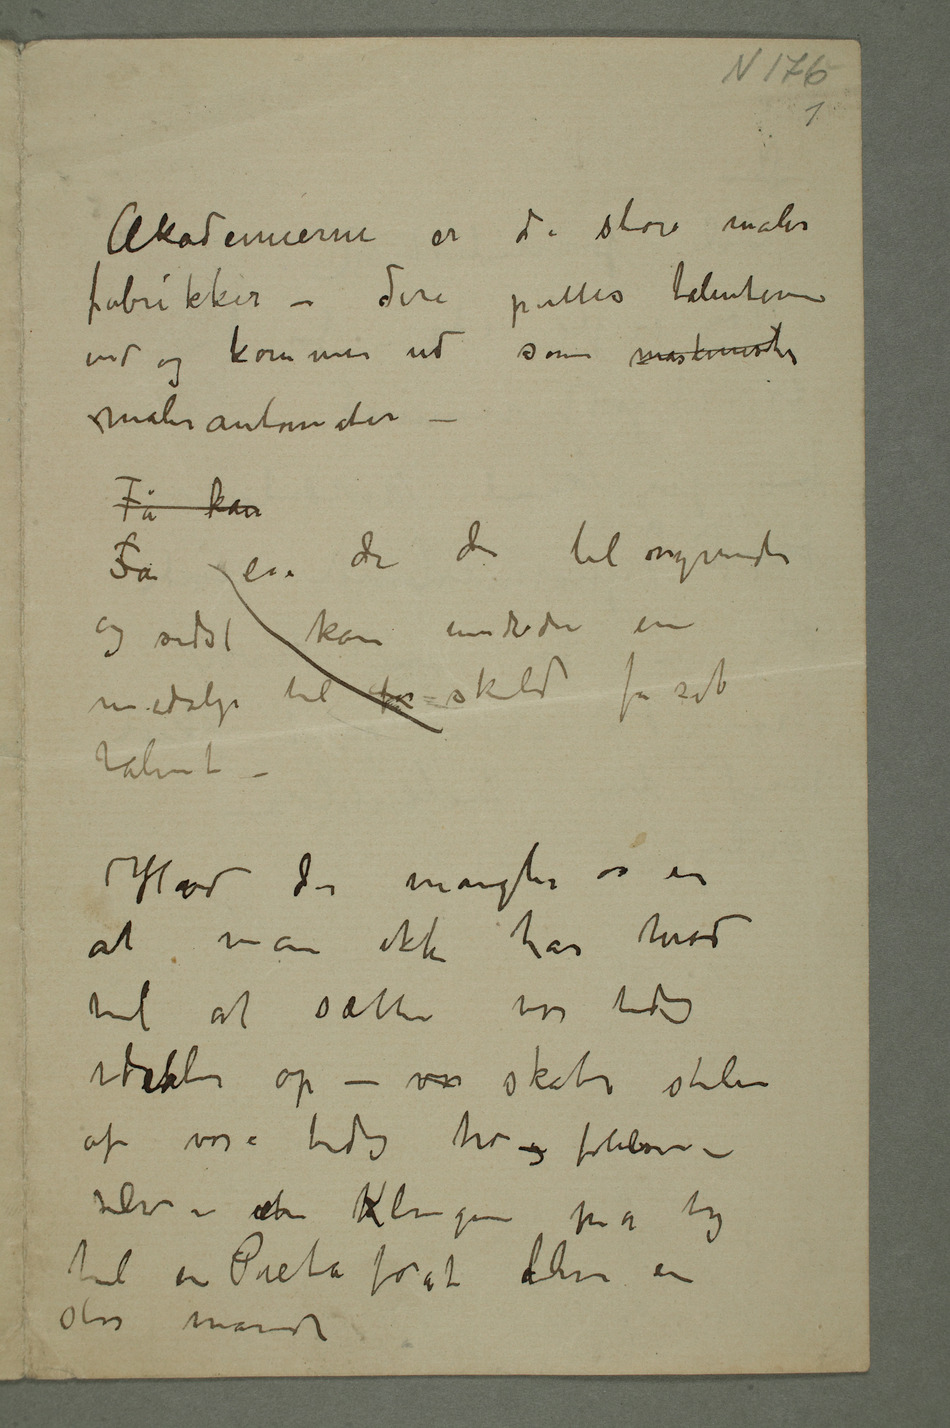 N 176
1
Akademierne er de store maler
fabrikker – dere puttes talenterne
ind og kommer ud som maskinister
malerautomater –
Få kan
Få er de der til syvende
og sidst kan indvie en
medalje til skild for sit
talent –
Hvad der mangler os er
at man ikke har mod
til at sætte vor tids
idealer op – skabe stilen
af vore tids tro og følelser –
selv en Klinger må ty
til en Pieta for at blive en
stor mand